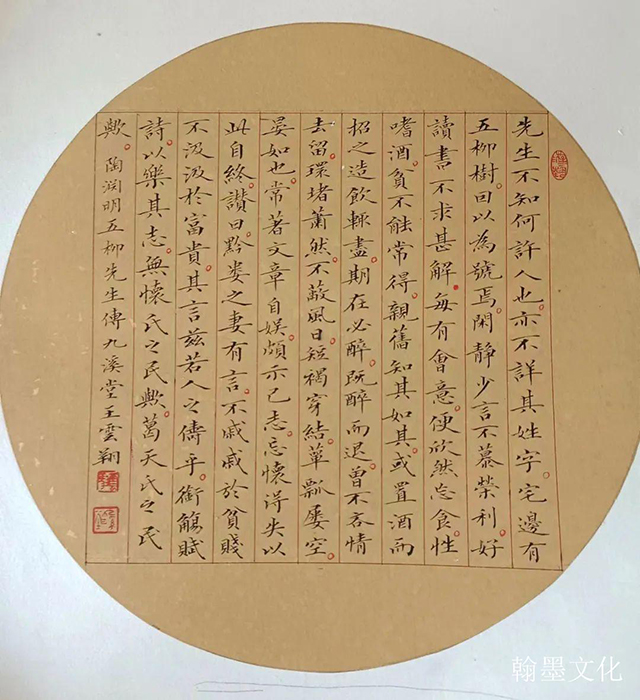 先生不知何許人也。亦不詳其姓字。宅邊有
五柳樹。因以為號焉。閑静少言不慕榮利。好
讀書不求甚解。每有會意。便欣然忘食。性
嗜酒。貧不能常得。親舊知其如其。或置酒而
招之造飲輒盡。期在必醉。既醉而退。曾不吝情
去留。環堵蕭然。不蔽風日。短褐穿結。簞瓢屡空。
晏如也。常著文章自娱。頗示己志。忘懷得失。以
此自終。讃曰。黔娄之妻有言。不戚戚於貧賤
不汲汲於富貴。其言兹若人之儔乎。銜觴賦
詩。以樂其志。無懷氏之民歟。葛天氏之民
歟。陶渊明五柳先生傳九溪堂王雲翔
翰墨文化